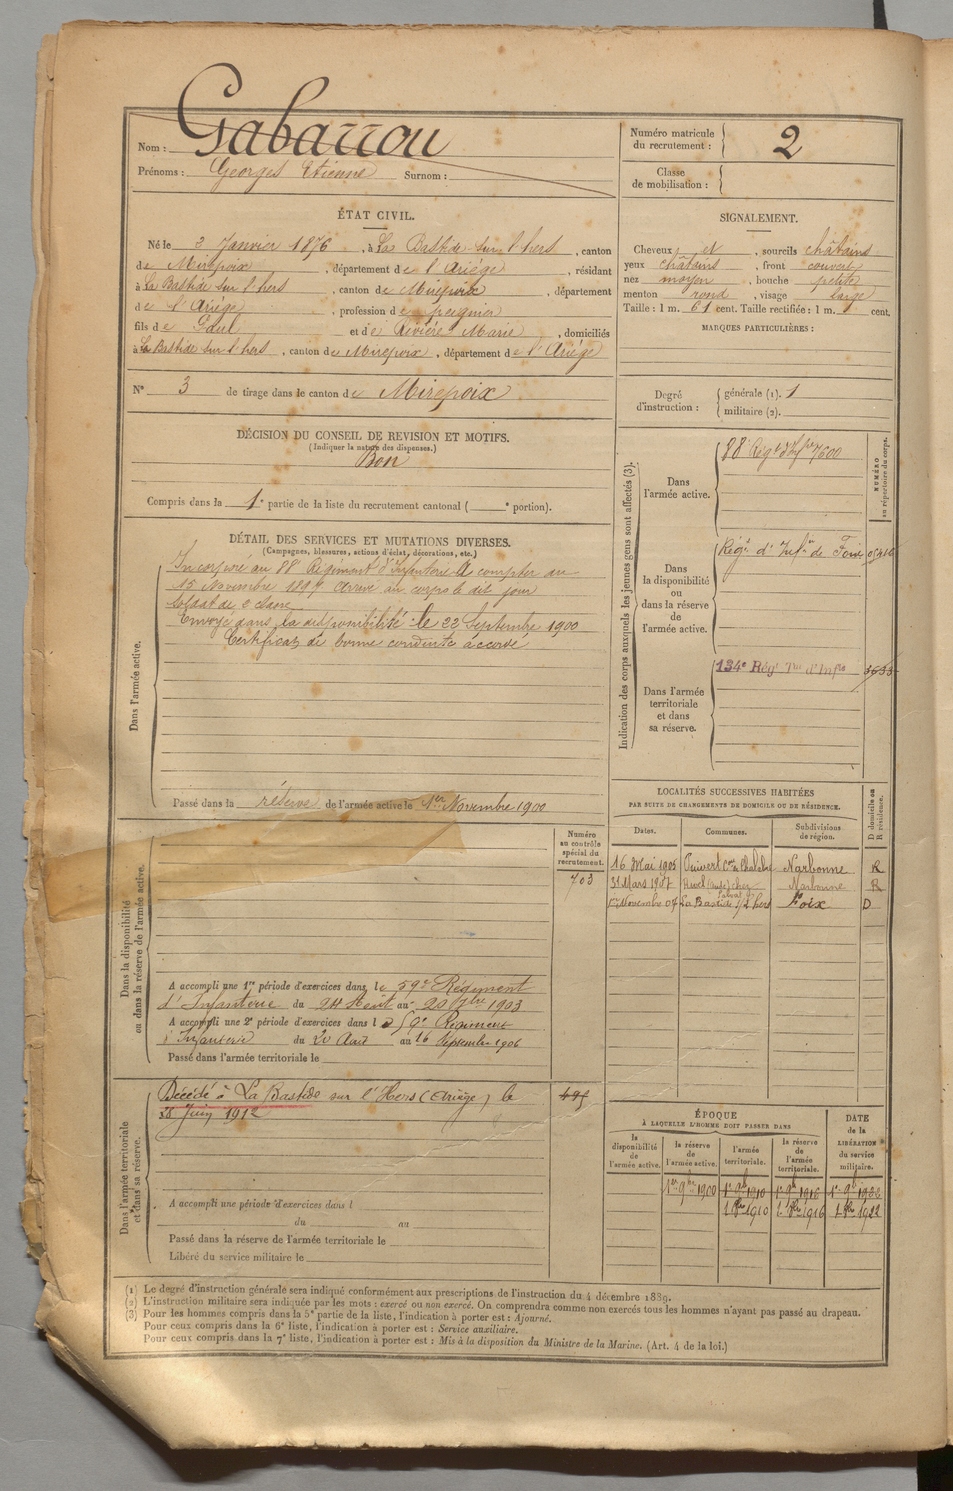 Nom : Gabarrou
Prénoms : Georges Etienne Surnom :
Numéro matricule du recrutement : 2
Classe de mobilisation :
ÉTAT CIVIL.
Né le 3 Janvier 1876, à La Bastide sur l'hers, canton
de Mirepoix, département de l'Ariége, résidant
à La Bastide sur l'hers, canton de Mirepoix, département
de l'Ariége, profession de peignier
fils de et de Rivière Marie, domiciliés
à La Bastide sur l'hers, canton de Mirepoix, département de l'Ariége
N° 3 de tirage dans le canton de Mirepoix
SIGNALEMENT.
Cheveux et, sourcils châtains
yeux châtains, front couvert
nez moyen, bouche petite
menton rond, visage large
Taille : 1 m. 61 cent. Taille rectifiée : 1 m. cent.
MARQUES PARTICULIÈRES :
Degré d'instruction : générale (1). 1
militaire (2).
DÉCISION DU CONSEIL DE REVISION ET MOTIFS.
(Indiquer la nature des dispenses.)
Bon
Compris dans la 1e partie de la liste du recrutement cantonal ( e portion).
DÉTAIL DES SERVICES ET MUTATIONS DIVERSES.
(Campagnes, blessures, actions d'éclat, décorations, etc.)
Dans l'armée active.
Incorporé au 88 Régiment d'Infanterie A compter du
15 Novembre 1897 Arrivé au corps le dit jour
Soldat de 2 classe
Envoyé dans la disponibilité le 22 Septembre 1900
Certificat de bonne conduite accordé
Passé dans la réserve de l'armée active le 1er Novembre 1900
Indication des corps auxquels les jeunes gens sont affectés (3).
NUMÉRO au répertoire du corps.
Dans l'armée active.
88 Régt d'Infrie 7600
Dans la disponibilité ou dans la réserve de l'armée active.
Régt d'Infie de Foix
Dans l'armée territoriale et dans sa réserve.
134e Régt Trial d'Infie
LOCALITÉS SUCCESSIVES HABITÉES
PAR SUITE DE CHANGEMENTS DE DOMICILE OU DE RÉSIDENCE.
Dates. Communes. Subdivisions de région. D domicile ou R résidence.
16 Mai 1905 Narbonne R
31 Mars 1907 Narbonne R
1er Novembre 07 La Bastide s/ L'hers Foix D
Numéro au contrôle spécial du recrutement.
703
Dans la disponibilité ou dans la réserve de l'armée active.
A accompli une 1re période d'exercices dans le 59e Régiment
d'Infanterie du 24 Août au 20 7bre 1903
A accompli une 2e période d'exercices dans le 59e Régiment
d'Infanterie du 20 Août au 16 Septembre 1906
Passé dans l'armée territoriale le
Dans l'armée territoriale et dans sa réserve.
Décédé à La Bastide sur l'Hers (Ariège) le
28 Juin 1912
A accompli une période d'exercices dans l
du au
Passé dans la réserve de l'armée territoriale le
Libéré du service militaire le
ÉPOQUE
À LAQUELLE L'HOMME DOIT PASSER DANS
la disponibilité de l'armée active. la réserve de l'armée active. l'armée territoriale. la réserve de l'armée territoriale. DATE de la LIBÉRATION du service militaire.
1er 9bre 1900 1er 9bre 1910 1er 9bre 1916 1er 9bre 1922
1 8bre 1910 1 8bre 1916 1 8bre 1922
(1) Le degré d'instruction générale sera indiqué conformément aux prescriptions de l'instruction du 4 décembre 1889.
(2) L'instruction militaire sera indiquée par les mots : exercé ou non exercé. On comprendra comme non exercés tous les hommes n'ayant pas passé au drapeau.
(3) Pour les hommes compris dans la 5e partie de la liste, l'indication à porter est : Ajourné.
Pour ceux compris dans la 6e liste, l'indication à porter est : Service auxiliaire.
Pour ceux compris dans la 7e liste, l'indication à porter est : Mis à la disposition du Ministre de la Marine. (Art. 4 de la loi.)